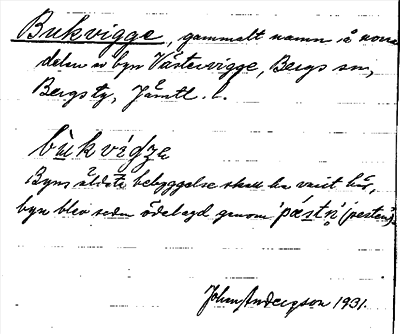 Bukvigge, gammalt namn å norra
delen av byn Västervigge, Bergs sn,
Bergs tg, Jämtl. l.
bùkvìgʒe
Byns äldsta bebyggelse skall ha varit här,
byn blev sedan ödelagd genom 'pæstn̥' (pesten).
John Andersson 1931.